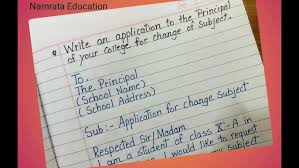 Namrata Education
Write an application to the Principal
of your college for change of Subject.
To,
The Principal
(School Name)
(School Address)
Sub:- Application for change Subject
Respected Sir/Madam
I am a student of class X-A in
I would like to request